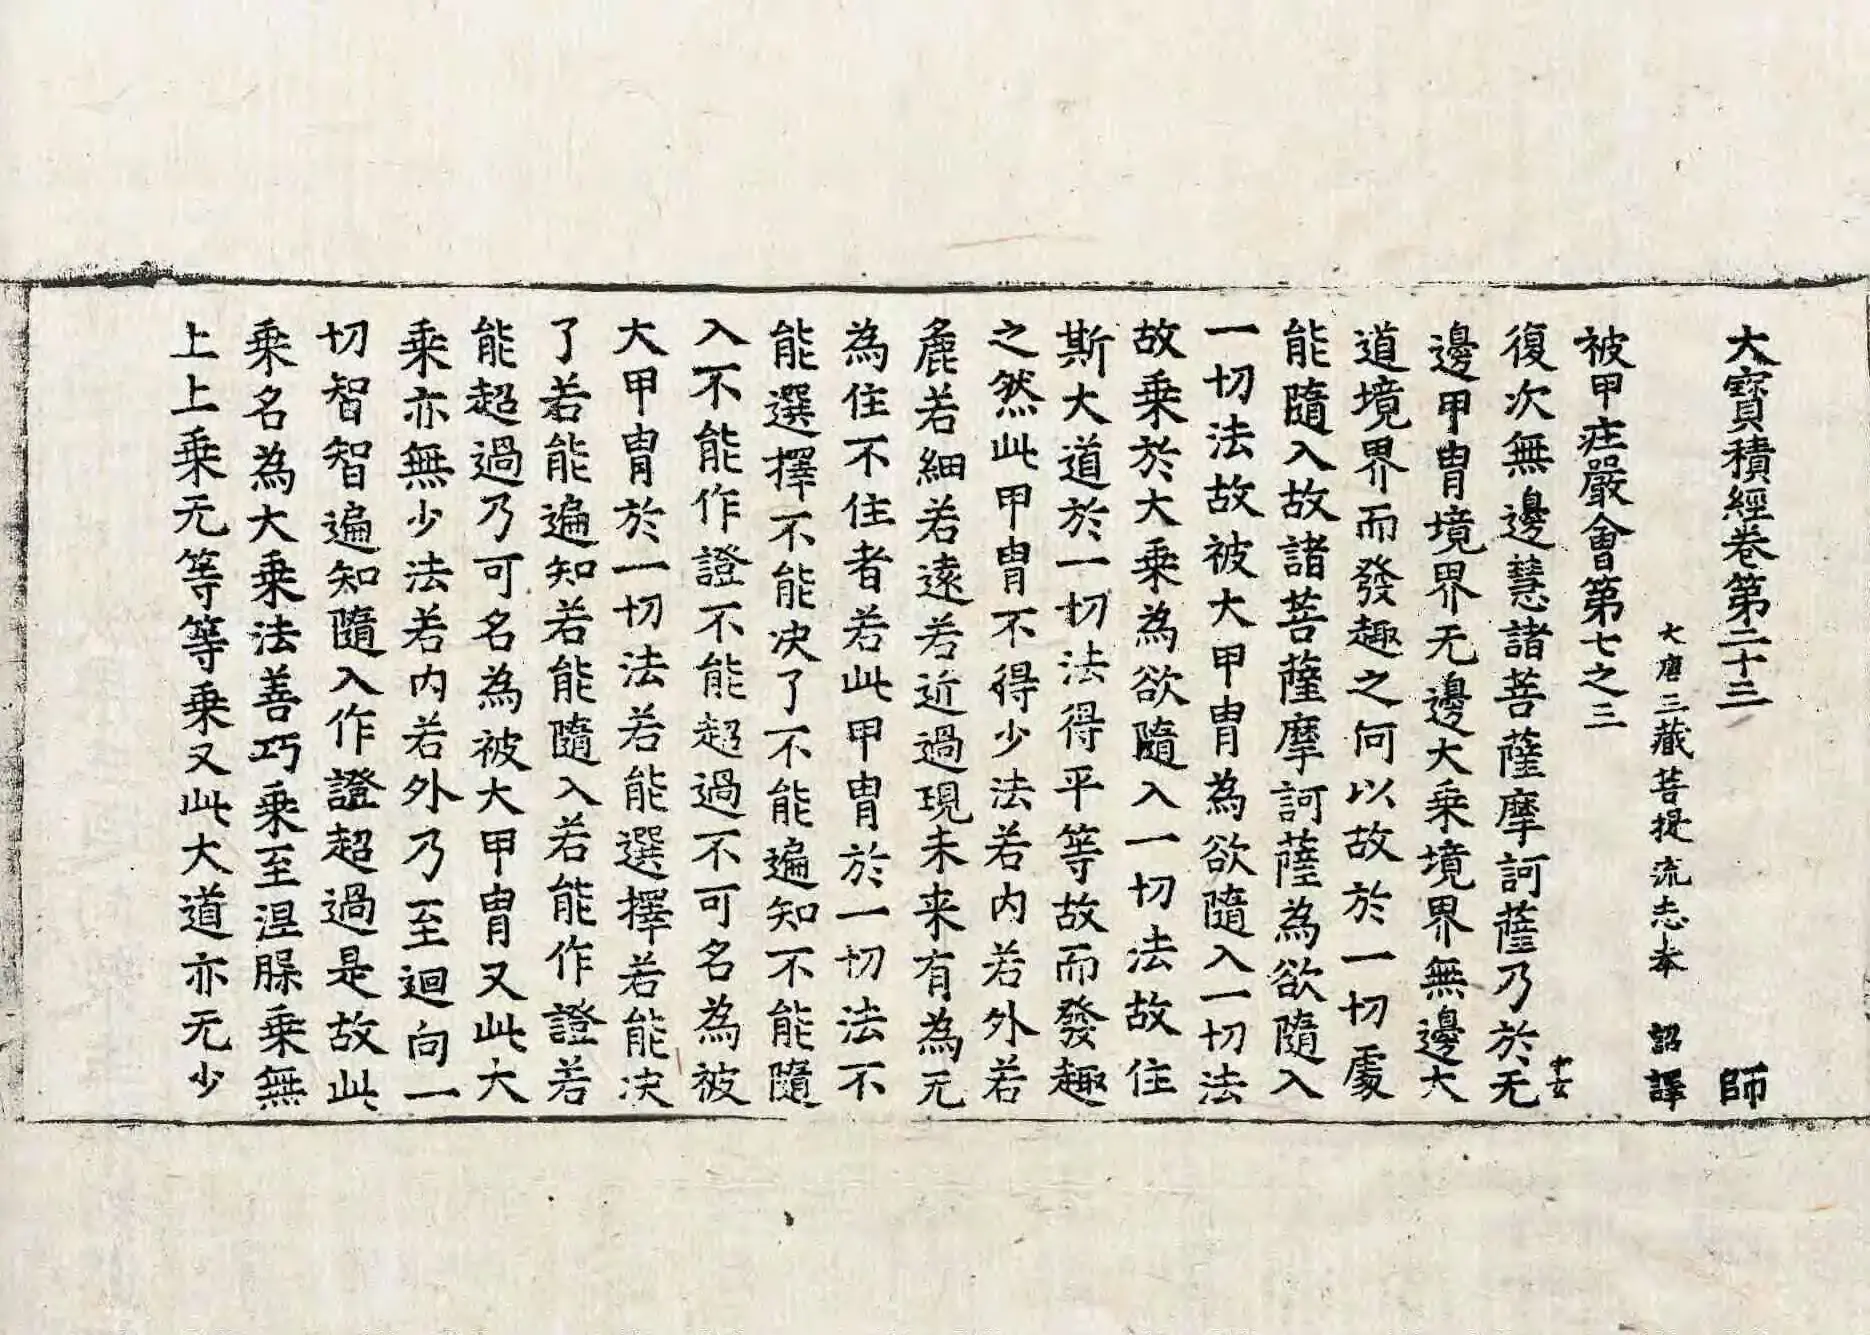 大寶積經卷第二十三 師
大唐三藏菩提流志奉 詔譯
被甲庄嚴會第七之三
復次無邊慧諸菩薩摩訶薩乃於无
邊甲冑境界无邊大乘境界無邊大
道境界而發趣之何以故於一切處
能隨入故諸菩薩摩訶薩為欲隨入
一切法故被大甲冑為欲隨入一切法
故乘於大乘為欲隨入一切法故住
斯大道於一切法得平等故而發趣
之然此甲冑不得少法若內若外若
麁若細若遠若近過現未来有為无
為住不住者若此甲冑於一切法不
能選擇不能决了不能遍知不能隨
入不能作證不能超過不可名為被
大甲冑於一切法若能選擇若能决
了若能遍知若能隨入若能作證若
能超過乃可名為被大甲冑又此大
乘亦無少法若內若外乃至迴向一
切智智遍知隨入作證超過是故此
乘名為大乘法善巧乘至涅槃乘無
上上乘无等等乘又此大道亦无少